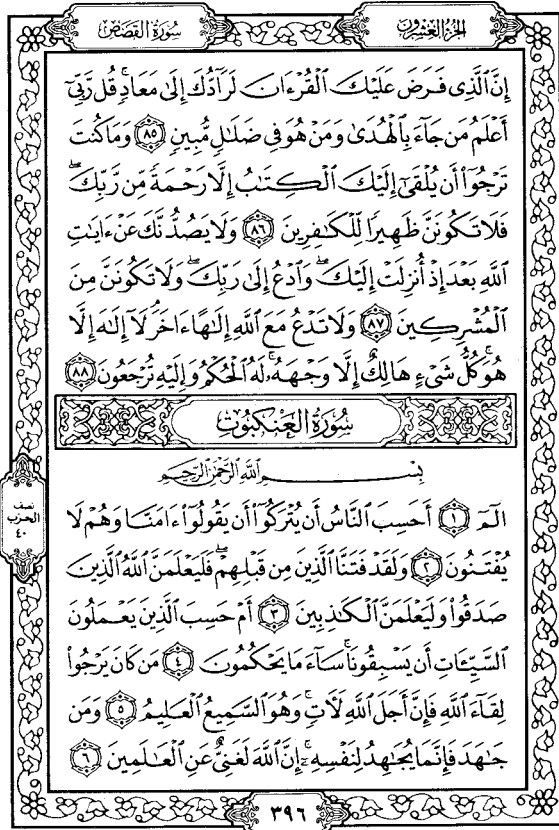 سُورَةُ القَصَصِ
الجُزْءُ العِشْرُونَ
إِنَّ ٱلَّذِى فَرَضَ عَلَيْكَ ٱلْقُرْءَانَ لَرَآدُّكَ إِلَىٰ مَعَادٍۚ قُل رَّبِّىٓ
أَعْلَمُ مَن جَآءَ بِٱلْهُدَىٰ وَمَنْ هُوَ فِى ضَلَٰلٍ مُّبِينٍ ٨٥ وَمَا كُنتَ
تَرْجُوٓا۟ أَن يُلْقَىٰٓ إِلَيْكَ ٱلْكِتَٰبُ إِلَّا رَحْمَةً مِّن رَّبِّكَۖ
فَلَا تَكُونَنَّ ظَهِيرًا لِّلْكَٰفِرِينَ ٨٦ وَلَا يَصُدُّنَّكَ عَنْ ءَايَٰتِ
ٱللَّهِ بَعْدَ إِذْ أُنزِلَتْ إِلَيْكَۖ وَٱدْعُ إِلَىٰ رَبِّكَۖ وَلَا تَكُونَنَّ مِنَ
ٱلْمُشْرِكِينَ ٨٧ وَلَا تَدْعُ مَعَ ٱللَّهِ إِلَٰهًا ءَاخَرَۘ لَآ إِلَٰهَ إِلَّا
هُوَۚ كُلُّ شَىْءٍ هَالِكٌ إِلَّا وَجْهَهُۥۚ لَهُ ٱلْحُكْمُ وَإِلَيْهِ تُرْجَعُونَ ٨٨
سُورَةُ العَنكَبُوتِ
بِسْمِ ٱللَّهِ ٱلرَّحْمَٰنِ ٱلرَّحِيمِ
الٓمٓ ١ أَحَسِبَ ٱلنَّاسُ أَن يُتْرَكُوٓا۟ أَن يَقُولُوٓا۟ ءَامَنَّا وَهُمْ لَا
يُفْتَنُونَ ٢ وَلَقَدْ فَتَنَّا ٱلَّذِينَ مِن قَبْلِهِمْۖ فَلَيَعْلَمَنَّ ٱللَّهُ ٱلَّذِينَ
صَدَقُوا۟ وَلَيَعْلَمَنَّ ٱلْكَٰذِبِينَ ٣ أَمْ حَسِبَ ٱلَّذِينَ يَعْمَلُونَ
ٱلسَّيِّـَٔاتِ أَن يَسْبِقُونَاۚ سَآءَ مَا يَحْكُمُونَ ٤ مَن كَانَ يَرْجُوا۟
لِقَآءَ ٱللَّهِ فَإِنَّ أَجَلَ ٱللَّهِ لَـَٔاتٍۚ وَهُوَ ٱلسَّمِيعُ ٱلْعَلِيمُ ٥ وَمَن
جَٰهَدَ فَإِنَّمَا يُجَٰهِدُ لِنَفْسِهِۦٓۚ إِنَّ ٱللَّهَ لَغَنِىٌّ عَنِ ٱلْعَٰلَمِينَ ٦
نصف
الحزب
٤٠
٣٩٦